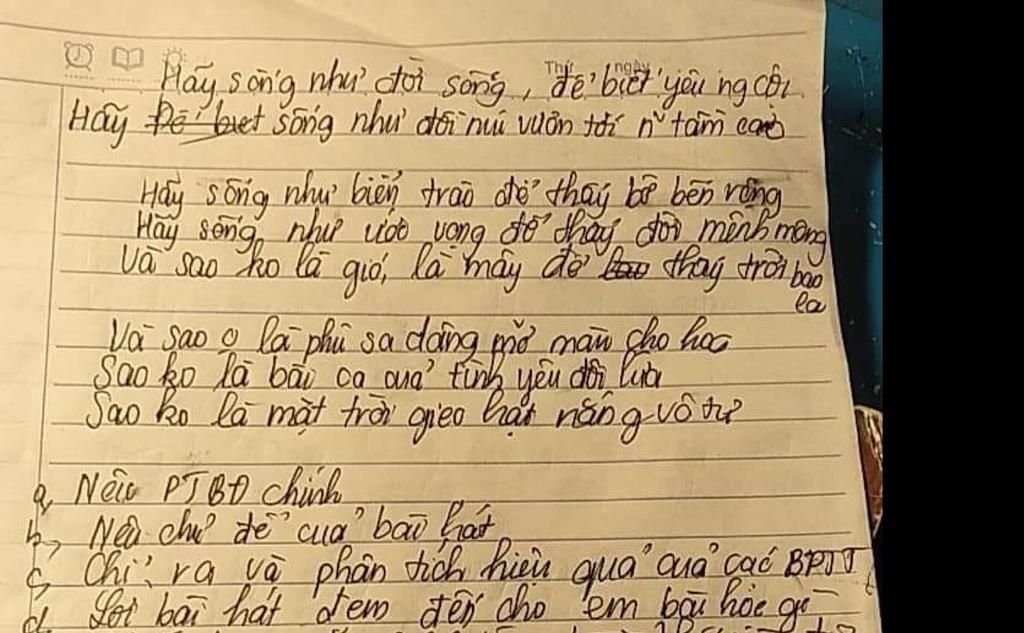 Thứ ngày
Hãy sống như đời sống, để biết yêu ng cội
Hãy Để biet sống như đồi núi vươn tới n~ tầm cao
Hãy sống như biển trào để thấy bờ bến rộng
Hãy sống như ước vọng để thấy đời mênh mông
Và sao ko là gió, là mây để thấy trời bao
la
Và sao o là phù sa dâng mỡ màu cho hoa
Sao ko là bài ca của tình yêu đôi lứa
Sao ko là mặt trời gieo hạt nắng vô tư
a, Nêu PTBĐ chính
b, Nêu chủ đề của bài hát
c, Chỉ ra và phân tích hiệu quả của các BPTT
d, Lời bài hát đem đến cho em bài học gì